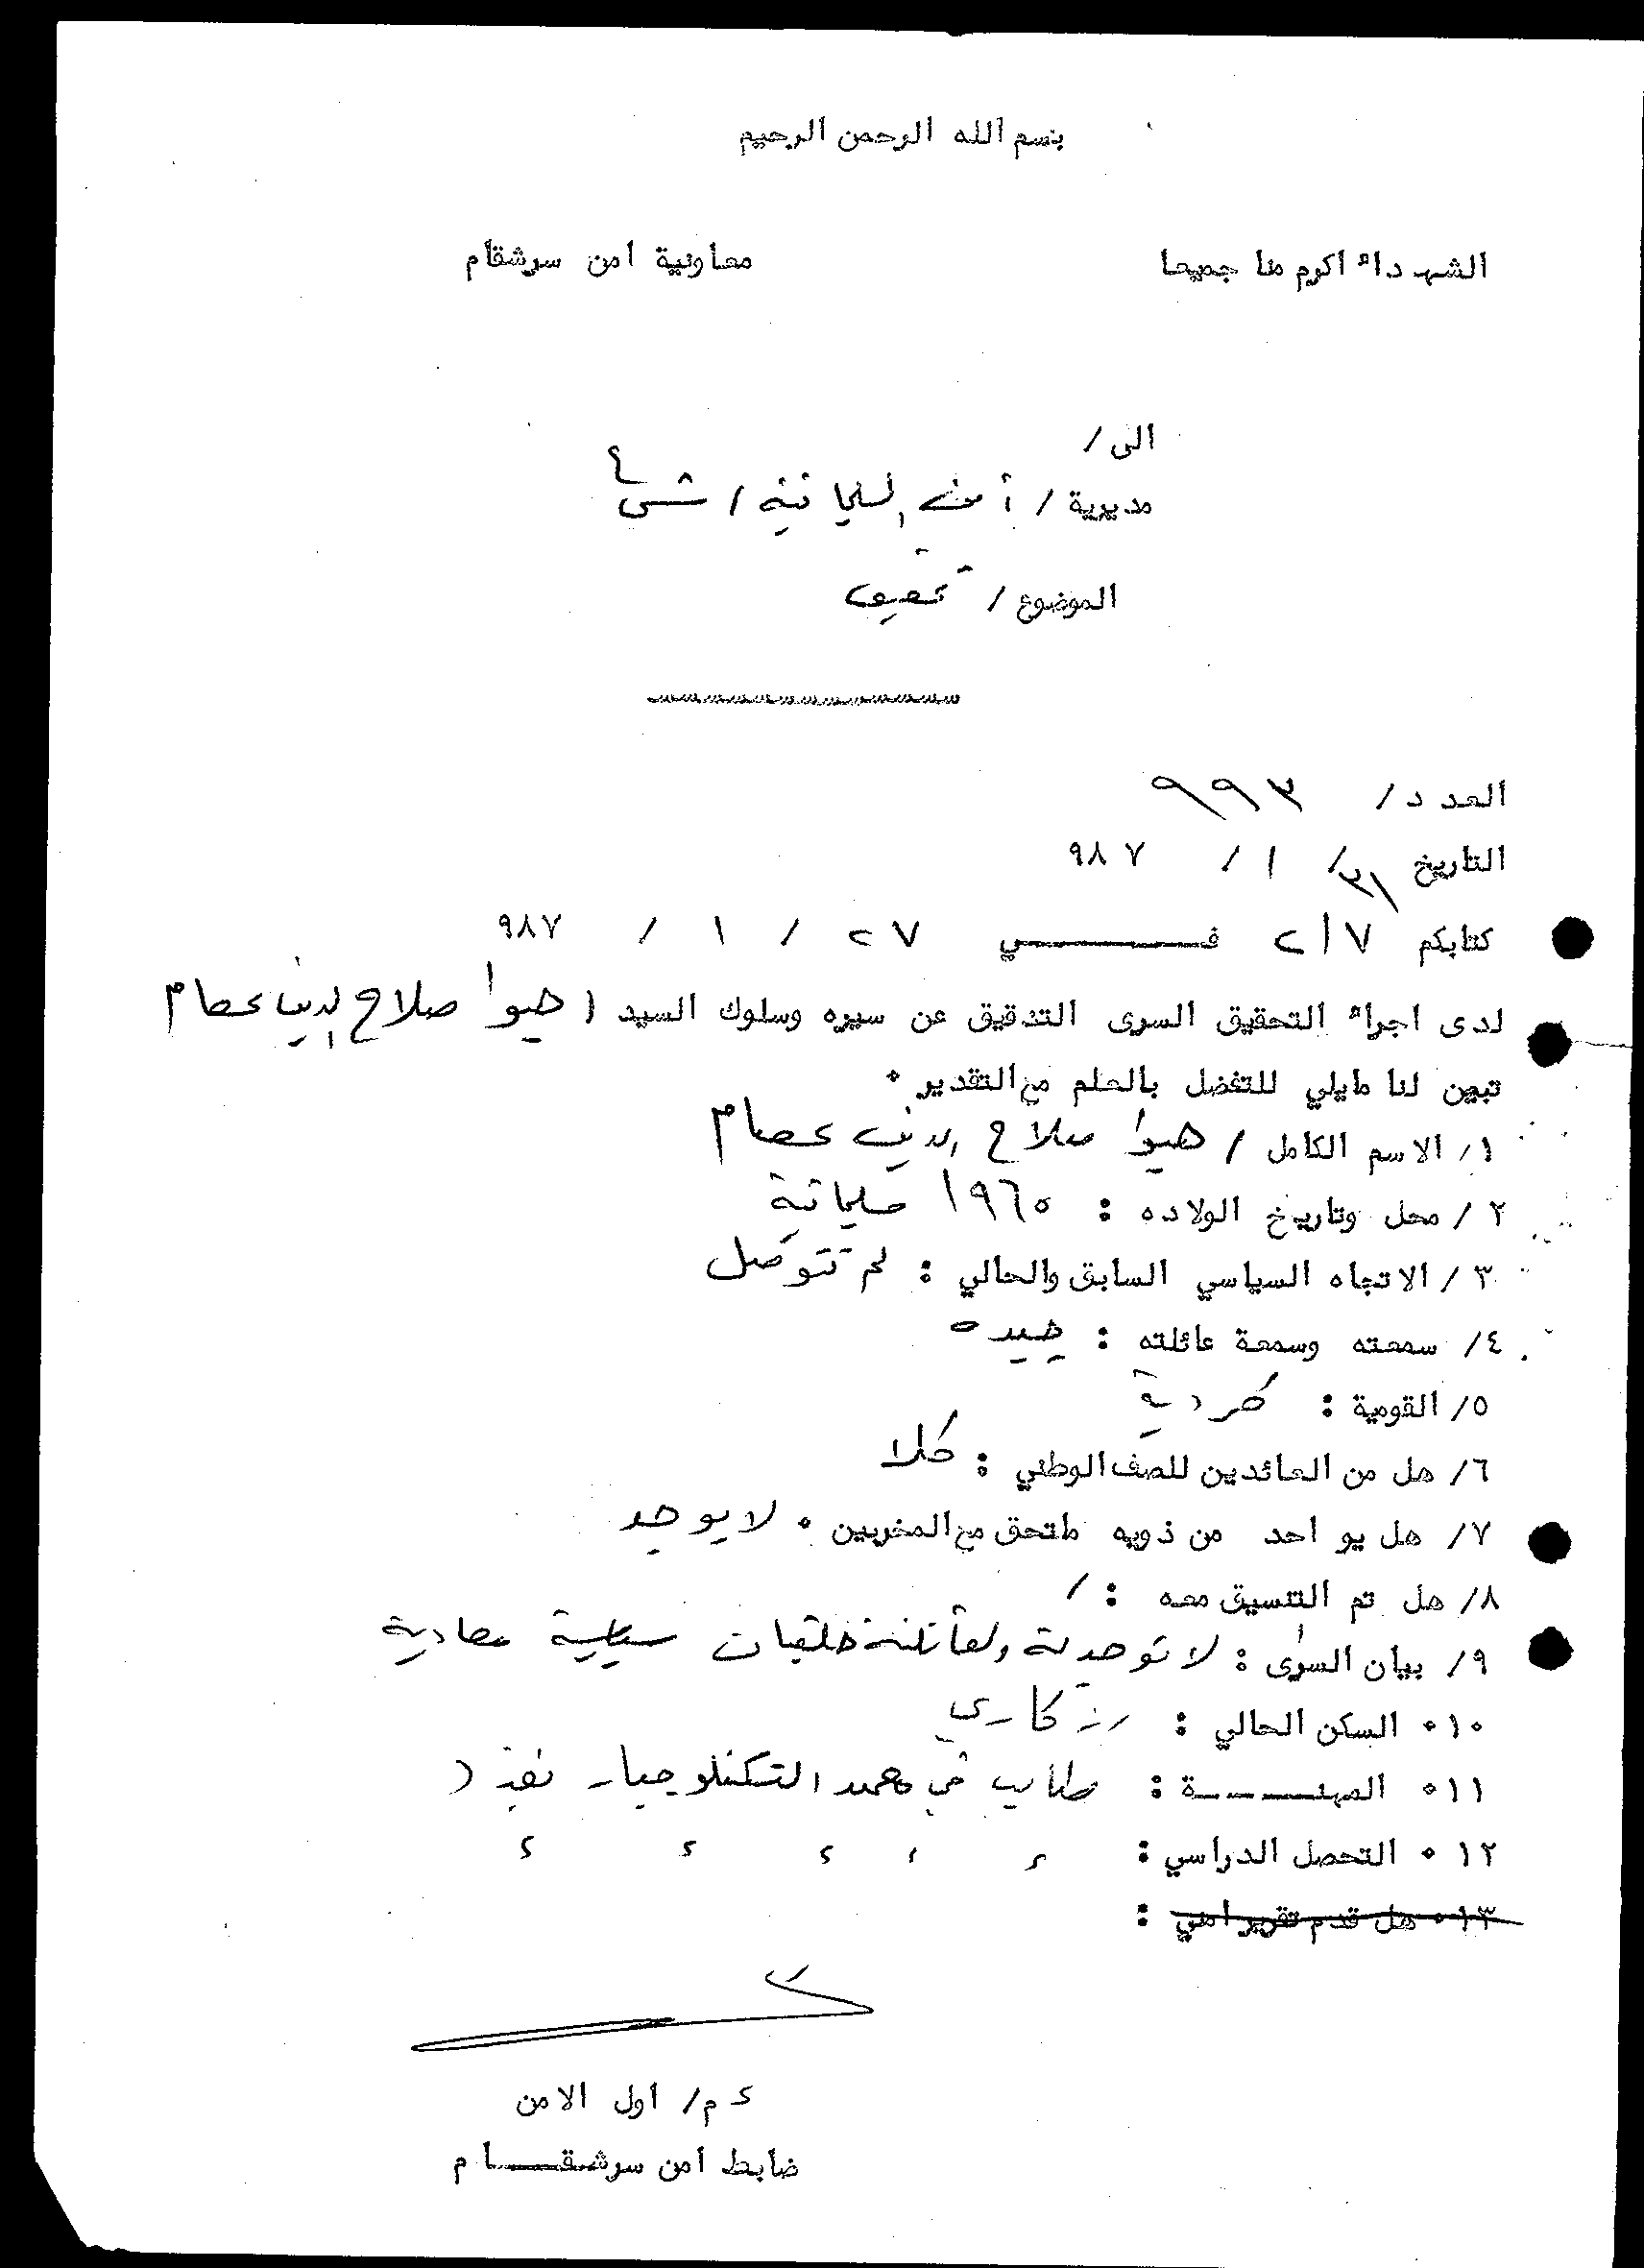 بسم الله الرحمن الرحيم
الشهداء اكرم منا جميعا
معاونية امن سرشقام
الى /
مديرية / أمن السليمانية /
الموضوع / تحقيق
العدد / ٩٩٣
التاريخ ٣١ / ١ / ٩٨٧
كتابكم ٢/٧ في ٢٧ / ١ / ٩٨٧
لدى اجراء التحقيق السرى التدقيق عن سيره وسلوك السيد ( هيوا صلاح الدين عصام
تبين لنا مايلي للتفضل بالعلم مع التقدير ٠
١/ الاسم الكامل / هيوا صلاح الدين عصام
٢ / محل وتاريخ الولاده : ١٩٦٥ سليمانية
٣ / الاتجاه السياسي السابق والحالي : لم نتوصل
٤/ سمعته وسمعة عائلته : جيده
٥/ القومية : كردية
٦/ هل من العائدين للصف الوطني : كلا
٧/ هل يو احد من ذويه ملتحق مع المخربين ٠ لا يوجد
٨/ هل تم التنسيق معه : /
٩/ بيان السراى : لا توجد له ولعائلته خلفيات سياسية معادية
١٠٠ السكن الحالي : رزكاري
١١٠ المهنــــة : طالب في معهد التكنلوجيا
١٢ ٠ التحصل الدراسي : ء ء ء ء ء
١٣٠ هل قدم تقرير امني :
ء م/ اول الامن
ضابط امن سرشقــــام